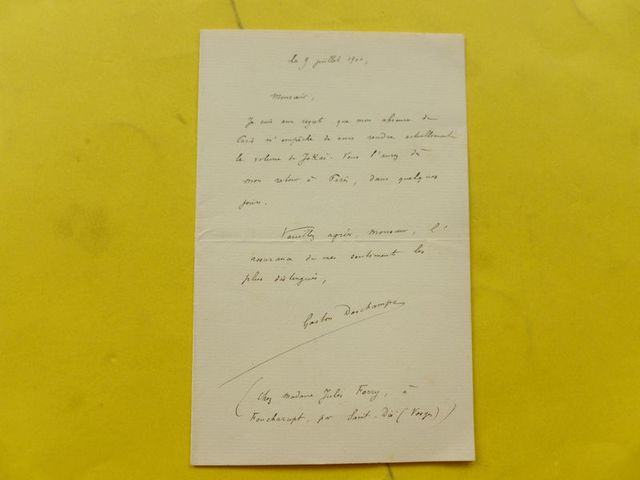 le 9 juillet 1900,
Monsieur,
Je vois avec regret que mon absence de
Paris m'empêche de vous rendre actuellement
le volume de Jokaï. Vous l'aurez dès
mon retour à Paris, dans quelques
jours.
Veuillez agréer, Monsieur, l'
assurance de mes sentiments les
plus distingués,
Gaston Deschamps
(Chez Madame Jules Ferry, à
Foucharupt, par Saint-Dié (Vosges))